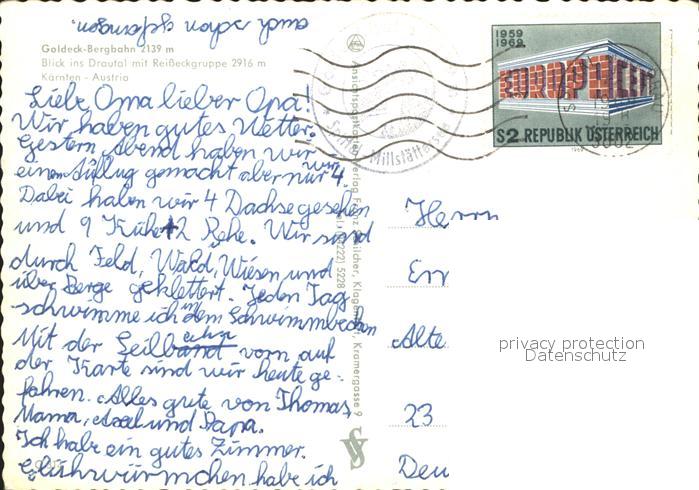 auch schon gefangen.
Goldeck-Bergbahn 2139 m
Blick ins Drautal mit Reißeckgruppe 2916 m
Kärnten - Austria
Liebe Oma lieber Opa!
Wir haben gutes Wetter.
Gestern Abend haben wir
einen Ausflug gemacht aber nur wir 4.
Dabei haben wir 4 Dachse gesehen
und 9 Kühe + 2 Rehe. Wir sind
durch Feld, Wald, Wiesen und
über Berge geklettert. Jeden Tag
schwimme ich im Schwimmbecken
Mit der Seilbahn vorn auf
der Karte sind wir heute ge-
fahren. Alles gute von Thomas,
Mama, Axel und Papa.
Ich habe ein gutes Zimmer.
Glühwürmchen habe ich
Ansichtspostkarten-Verlag Franz Schilcher, Klagenfurt, Kramergasse 9
(04222) 5228
1959
1969
EUROPA CEPT
S2 REPUBLIK ÖSTERREICH
Millstättersee
Herrn
Alte
23
privacy protection
Datenschutz